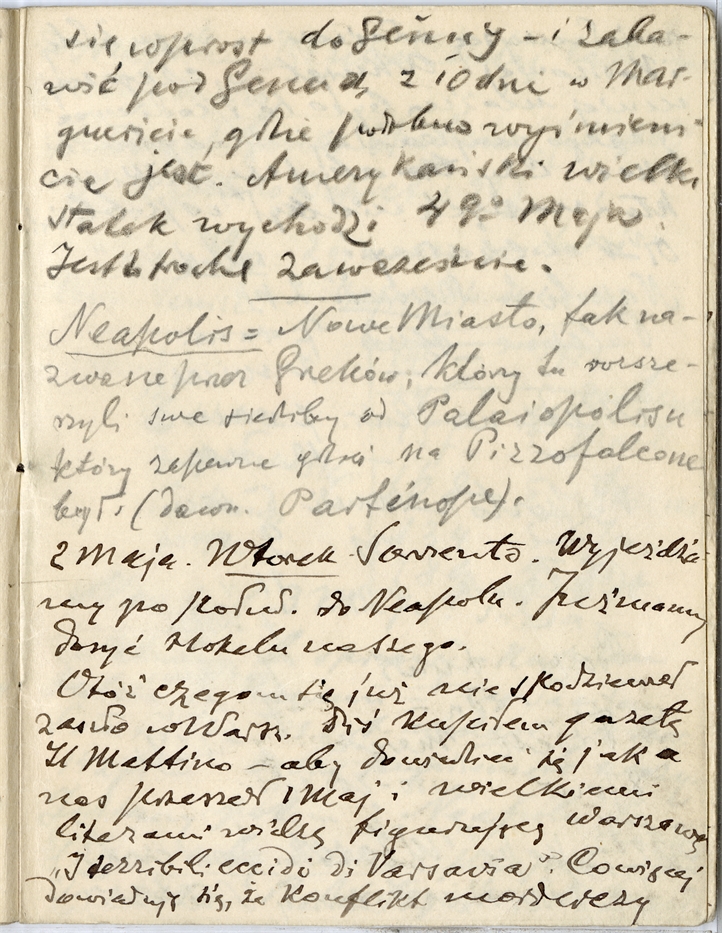 się wprost do Genuy – i zaba-
wić pod Genuą z 10 dni w Mar-
guericie, gdzie podobno wyśmieni-
cie jest. Amerykański wielki
statek wychodzi 49º Maja.
Jest to trochę zawcześnie.
Neapolis = Nowe Miasto, tak na-
zwane przez Greków, którzy tu rozsze-
rzyli swe siedziby od Palaiopolisu
który zapewne gdzieś na Pizzofalcone
był. (dawn. Parténope).
2 Maja. Wtorek Sorrento. Wyjeżdża-
my po połud. do Neapolu. Już mamy
dosyć Hotelu naszego.
Otóż czegom się już nie spodziewał
zaszło w Warsz. Dziś kupiłem gazetę
Il Mattino – aby dowiedzieć się jak u
nas przeszedł 1 Maj i wielkiemi
literami widzę figurującą Warszawę
„I terribili eccidi di Varsavia". Co więcej
dowiaduję się, że konflikt morderczy